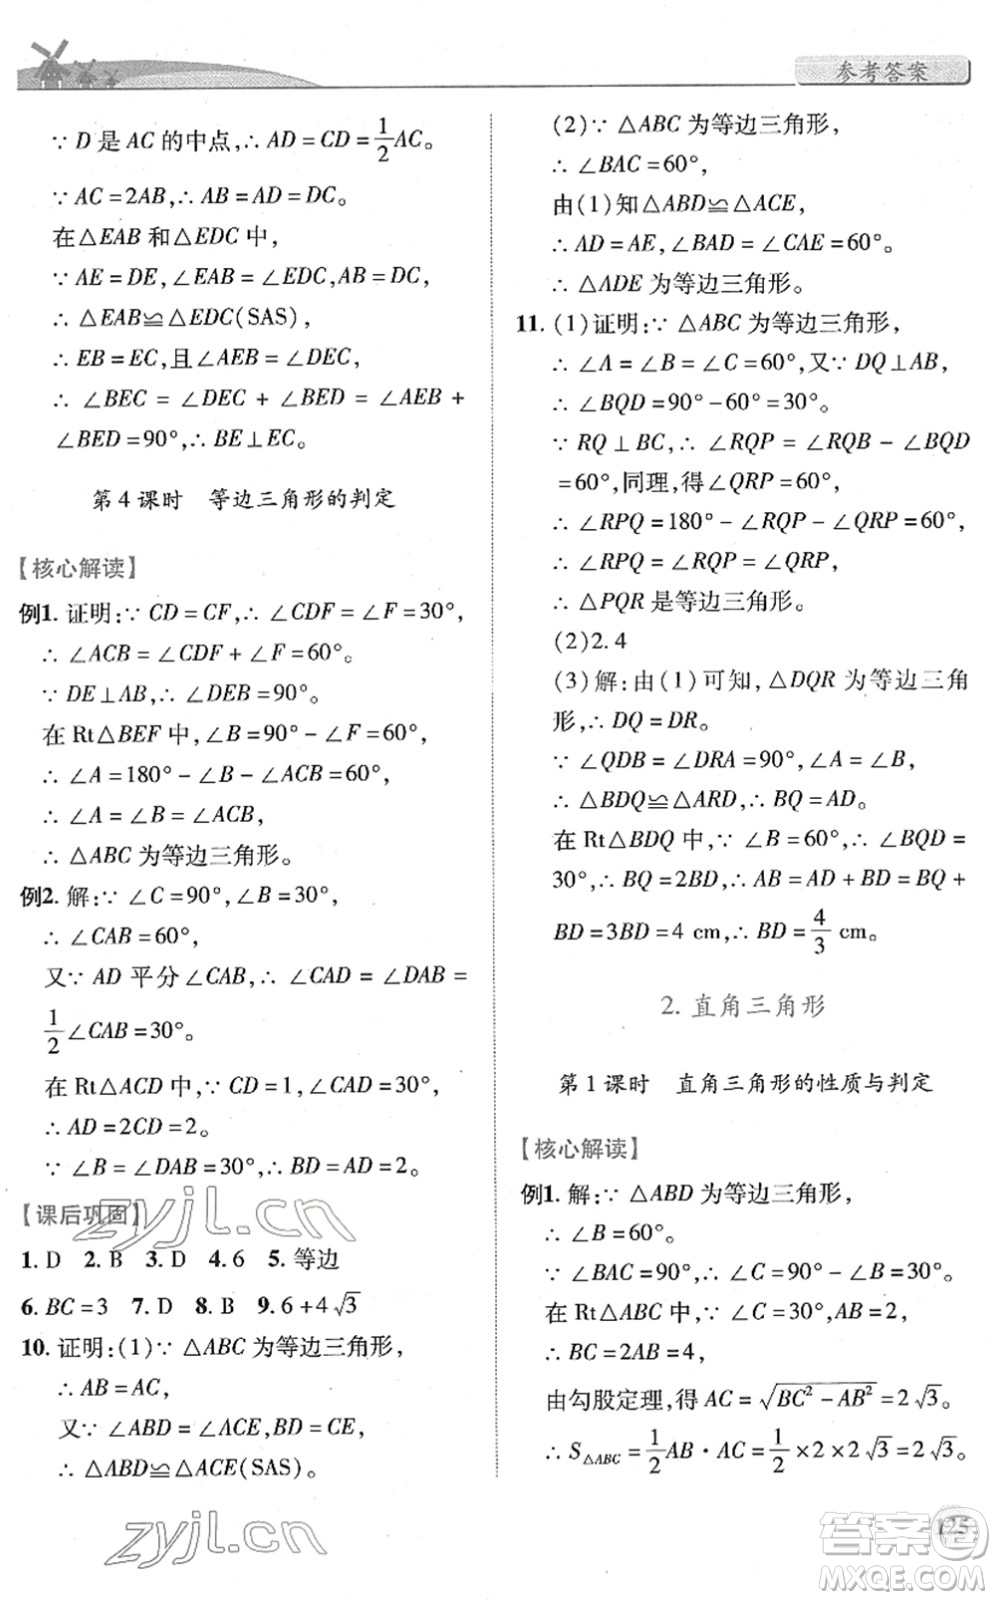 参考答案
∵ D 是 AC 的中点,∴ AD = CD = 1/2 AC。
∵ AC = 2AB,∴ AB = AD = DC。
在△EAB 和△EDC 中,
∵ AE = DE,∠EAB = ∠EDC,AB = DC,
∴ △EAB≌△EDC(SAS),
∴ EB = EC,且∠AEB = ∠DEC,
∴ ∠BEC = ∠DEC + ∠BED = ∠AEB +
∠BED = 90°,∴ BE⊥EC。
第 4 课时 等边三角形的判定
【核心解读】
例1. 证明:∵ CD = CF,∴ ∠CDF = ∠F = 30°,
∴ ∠ACB = ∠CDF + ∠F = 60°。
∵ DE⊥AB,∴ ∠DEB = 90°。
在 Rt△BEF 中,∠B = 90° - ∠F = 60°,
∴ ∠A = 180° - ∠B - ∠ACB = 60°,
∴ ∠A = ∠B = ∠ACB,
∴ △ABC 为等边三角形。
例2. 解:∵ ∠C = 90°,∠B = 30°,
∴ ∠CAB = 60°,
又∵ AD 平分∠CAB,∴ ∠CAD = ∠DAB =
1/2 ∠CAB = 30°。
在 Rt△ACD 中,∵ CD = 1,∠CAD = 30°,
∴ AD = 2CD = 2。
∵ ∠B = ∠DAB = 30°,∴ BD = AD = 2。
【课后巩固】
1. D 2. B 3. D 4. 6 5. 等边
6. BC = 3 7. D 8. B 9. 6 + 4√3
10. 证明:(1)∵ △ABC 为等边三角形,
∴ AB = AC,
又∵ ∠ABD = ∠ACE,BD = CE,
∴ △ABD≌△ACE(SAS)。
(2)∵ △ABC 为等边三角形,
∴ ∠BAC = 60°,
由(1)知△ABD≌△ACE,
∴ AD = AE,∠BAD = ∠CAE = 60°。
∴ △ADE 为等边三角形。
11. (1)证明:∵ △ABC 为等边三角形,
∴ ∠A = ∠B = ∠C = 60°,又∵ DQ⊥AB,
∴ ∠BQD = 90° - 60° = 30°。
∵ RQ⊥BC,∴ ∠RQP = ∠RQB - ∠BQD
= 60°,同理,得∠QRP = 60°,
∴ ∠RPQ = 180° - ∠RQP - ∠QRP = 60°,
∴ ∠RPQ = ∠RQP = ∠QRP,
∴ △PQR 是等边三角形。
(2)2. 4
(3)解:由(1)可知,△DQR 为等边三角
形,∴ DQ = DR。
∵ ∠QDB = ∠DRA = 90°,∠A = ∠B,
∴ △BDQ≌△ARD,∴ BQ = AD。
在 Rt△BDQ 中,∵ ∠B = 60°,∴ ∠BQD =
30°,∴ BQ = 2BD,∴ AB = AD + BD = BQ +
BD = 3BD = 4 cm,∴ BD = 4/3 cm。
2. 直角三角形
第 1 课时 直角三角形的性质与判定
【核心解读】
例1. 解:∵ △ABD 为等边三角形,
∴ ∠B = 60°。
∵ ∠BAC = 90°,∴ ∠C = 90° - ∠B = 30°。
在 Rt△ABC 中,∵ ∠C = 30°,AB = 2,
∴ BC = 2AB = 4,
由勾股定理,得 AC = √(BC² - AB²) = 2√3,
∴ S△ABC = 1/2 AB·AC = 1/2 × 2 × 2√3 = 2√3。
125
zyjl.cn
zyjl.cn
答案圈
MXQE.COM